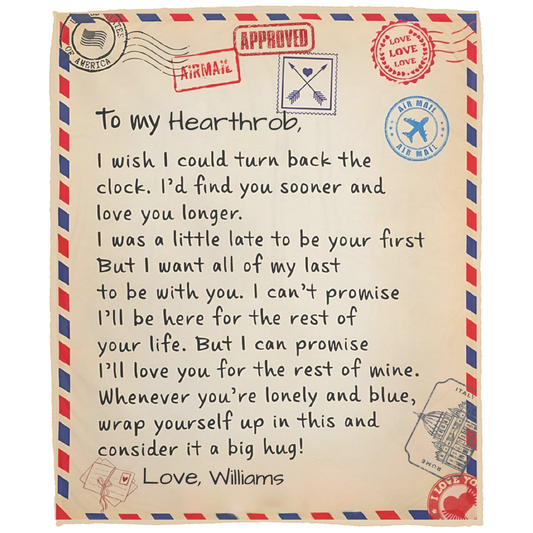 STATES
OF AMERICA
AIRMAIL
APPROVED
LOVE
LOVE
LOVE
AIR MAIL
AIR MAIL
To my Hearthrob,
I wish I could turn back the
clock. I'd find you sooner and
love you longer.
I was a little late to be your first
But I want all of my last
to be with you. I can't promise
I'll be here for the rest of
your life. But I can promise
I'll love you for the rest of mine.
Whenever you're lonely and blue,
wrap yourself up in this and
consider it a big hug!
Love, Williams
ITALY
ROME
I LOVE YO